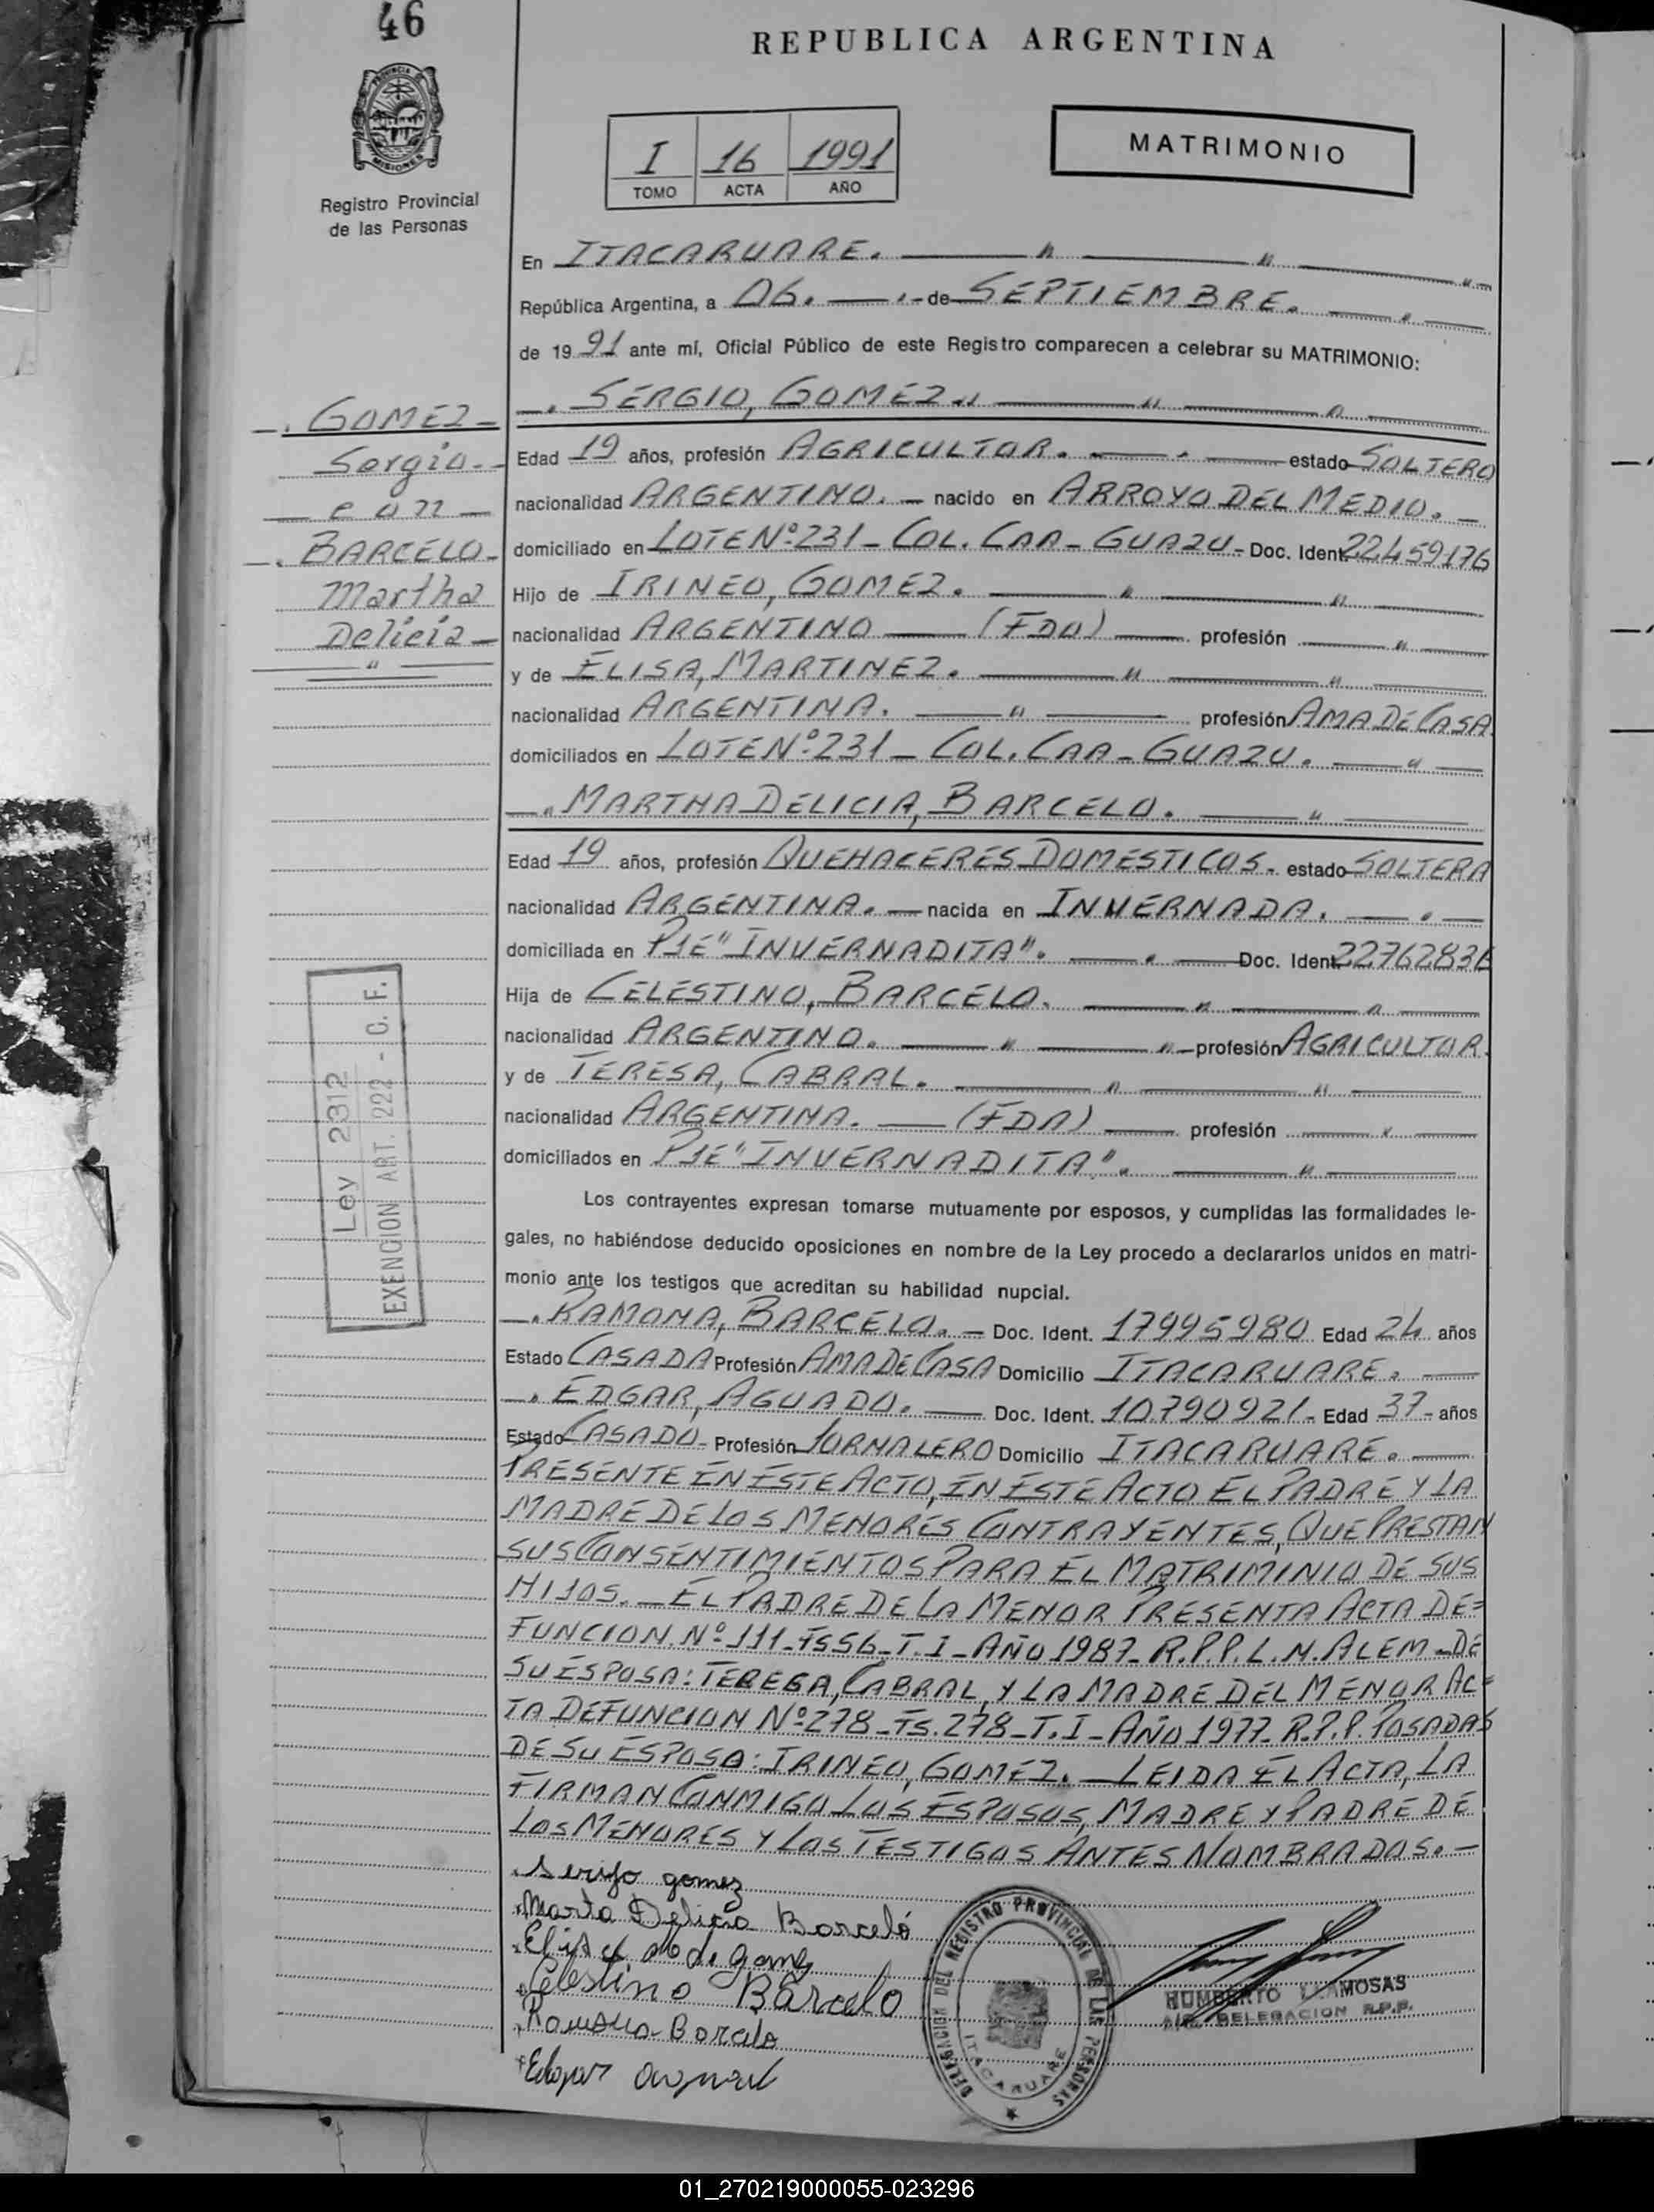 46
REPUBLICA ARGENTINA
PROVINCIA DE MISIONES
Registro Provincial
de las Personas
I 16 1991
TOMO ACTA AÑO
MATRIMONIO
En ITACARUARE.
República Argentina, a 06. de SEPTIEMBRE.
de 1991 ante mí, Oficial Público de este Registro comparecen a celebrar su MATRIMONIO:
GOMEZ
Sergio
con
BARCELO
Martha
Delicia
SERGIO, GOMEZ
Edad 19 años, profesión AGRICULTOR. estado SOLTERO
nacionalidad ARGENTINO. nacido en ARROYO DEL MEDIO.
domiciliado en LOTE Nº 231 - COL. CAA - GUAZU - Doc. Ident. 22459176
Hijo de IRINEO, GOMEZ.
nacionalidad ARGENTINO (FDO) profesión
y de ELISA, MARTINEZ.
nacionalidad ARGENTINA. profesión AMA DE CASA
domiciliados en LOTE Nº 231 - COL. CAA - GUAZU.
MARTHA DELICIA, BARCELO.
Edad 19 años, profesión QUEHACERES DOMESTICOS. estado SOLTERA
nacionalidad ARGENTINA. nacida en INVERNADA.
domiciliada en PJE "INVERNADITA". Doc. Ident.
Hija de CELESTINO, BARCELO.
nacionalidad ARGENTINO. profesión AGRICULTOR.
y de TERESA, CABRAL.
nacionalidad ARGENTINA. (FDA) profesión
domiciliados en PJE "INVERNADITA".
Ley 2312
EXENCION ART. 222 - C. F.
Los contrayentes expresan tomarse mutuamente por esposos, y cumplidas las formalidades le-
gales, no habiéndose deducido oposiciones en nombre de la Ley procedo a declararlos unidos en matri-
monio ante los testigos que acreditan su habilidad nupcial.
RAMONA, BARCELO. Doc. Ident. 17995980 Edad 24 años
Estado CASADA Profesión AMA DE CASA Domicilio ITACARUARE.
EDGAR, AGUADO. Doc. Ident. 10.790921 - Edad 37 - años
Estado CASADO - Profesión JORNALERO Domicilio ITACARUARE.
PRESENTE EN ESTE ACTO, EN ESTE ACTO EL PADRE Y LA
MADRE DE LOS MENORES CONTRAYENTES, QUE PRESTAN
SUS CONSENTIMIENTOS PARA EL MATRIMINIO DE SUS
HIJOS. - EL PADRE DE LA MENOR PRESENTA ACTA DE=
FUNCION. Nº 111 - Fs 56 - T. I - AÑO 1987 - R.P.P. L. N. ALEM - DE
SU ESPOSA: TERESA, CABRAL, Y LA MADRE DEL MENOR AC=
TA DEFUNCION Nº 278 - Fs. 278 - T. I - AÑO 1977 - R.P.P. POSADAS
DE SU ESPOSO: IRINEO, GOMEZ. - LEIDA EL ACTA, LA
FIRMAN CONMIGO LOS ESPOSOS, MADRE Y PADRE DE
LOS MENORES Y LOS TESTIGOS ANTES NOMBRADOS. -
gomez
Marta Delicia Barceló
de gomez
Celestino Barcelo
Ramona Barcelo
Edgar
DELEGACION DEL REGISTRO PROVINCIAL DE LAS PERSONAS
ITACARUARE
HUMBERTO LLAMOSAS
DELEGACION R.P.P.
01_270219000055-023296